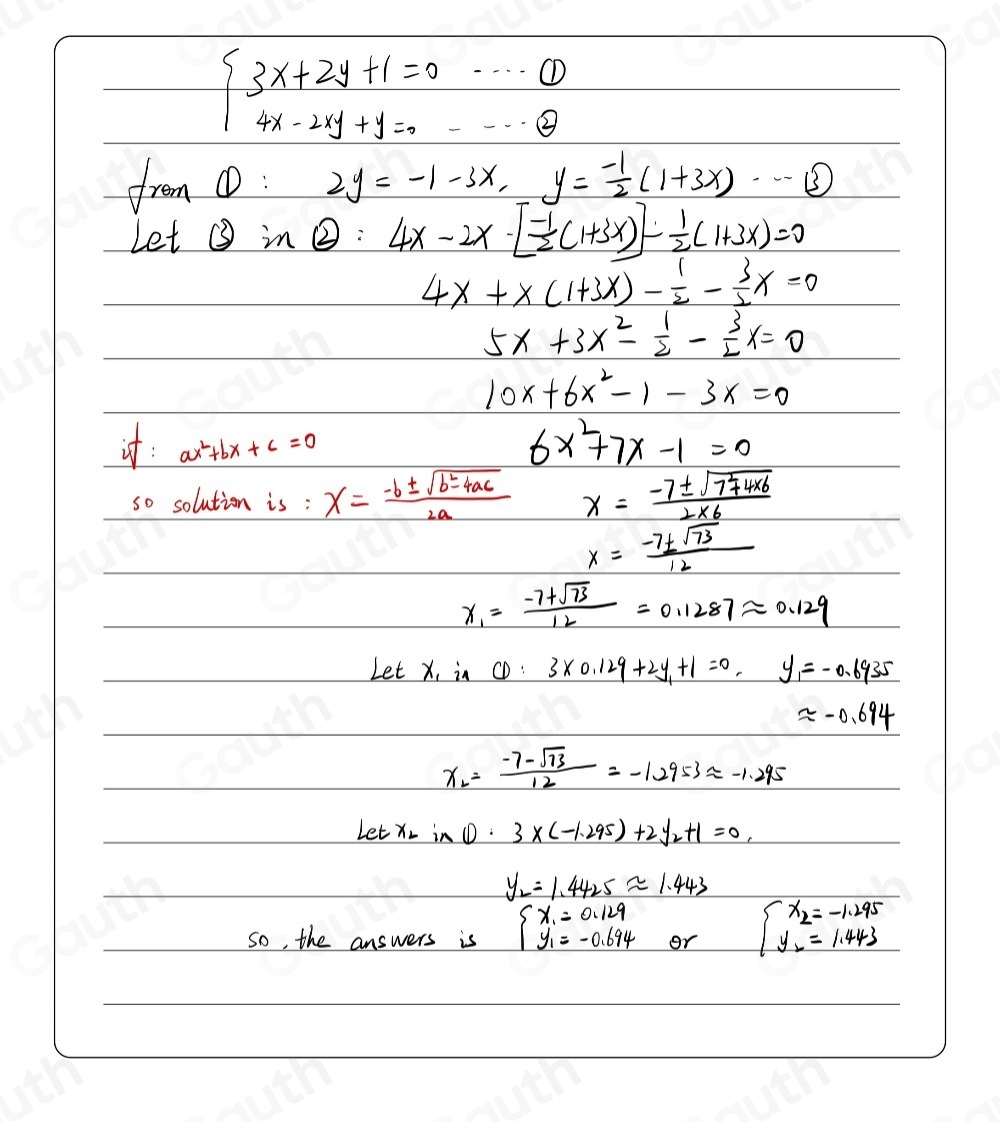 { 3x+2y+1=0 ---- ①
4x-2xy+y=0 - --- ②
from ①: 2y=-1-3x, y=\frac{-1}{2}(1+3x) --- ③
Let ③ in ②: 4x-2x·[\frac{-1}{2}(1+3x)]-\frac{1}{2}(1+3x)=0
4x+x(1+3x)-\frac{1}{2}-\frac{3}{2}x=0
5x+3x²-\frac{1}{2}-\frac{3}{2}x=0
10x+6x²-1-3x=0
if: ax²+bx+c=0 6x²+7x-1=0
so solution is: x=\frac{-b±\sqrt{b²-4ac}}{2a} x=\frac{-7±\sqrt{7²+4×6}}{2×6}
x=\frac{-7±\sqrt{73}}{12}
x₁=\frac{-7+\sqrt{73}}{12}=0.1287≈0.129
Let x₁ in ①: 3×0.129+2y₁+1=0. y₁=-0.6935
≈-0.694
x₂=\frac{-7-\sqrt{73}}{12}=-1.2953≈-1.295
Let x₂ in ①: 3×(-1.295)+2y₂+1=0,
y₂=1.4425≈1.443
so, the answers is { x₁=0.129 y₁=-0.694 or { x₂=-1.295 y₂=1.443
Gauth